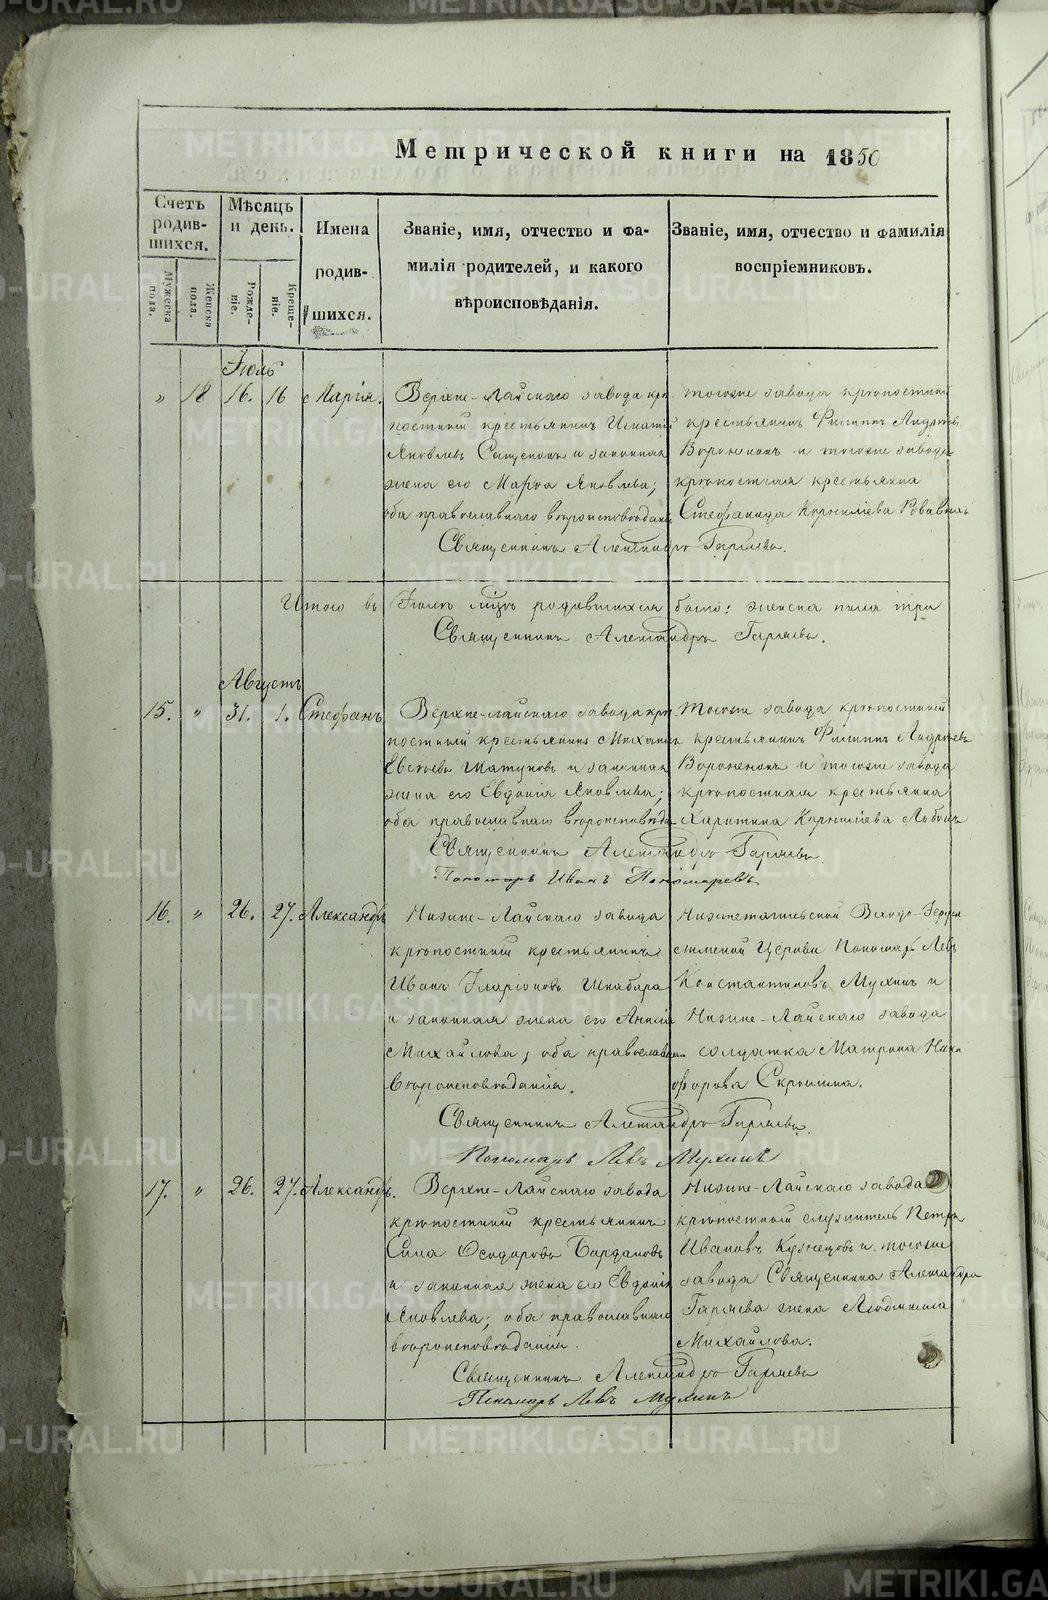 Метрической книги на 1850
Счетъ родив-шихся.
Мужеска пола.
Женска пола.
Мѣсяцъ и день.
Рожде-ніе.
Креще-ніе.
Имена родив-шихся.
Званіе, имя, отчество и фа-
милія родителей, и какого
вѣроисповѣданія.
Званіе, имя, отчество и фамилія
воспріемниковъ.
Іюль
" 18 16. 16 Марія.
Верхне-Лайскаго завода крѣ
постный крестьянинъ Игнатій
Яковлевъ и законная
жена его Марѳа Яковлева;
оба православнаго вѣроисповѣданія
тогоже завода крѣпостный
крестьянинъ Филиппъ Андреевъ
Вороненокъ и тогоже завода
крѣпостная крестьянка
Стефанида Корнилiева
Священникъ Александръ Гаряевъ.
Итого въ Іюлѣ мѣсяцѣ родившихся было: женска пола три
Священникъ Александръ Гаряевъ.
Августъ
15. " 31. 1. Стефанъ
Верхне-лайскаго завода крѣ
постный крестьянинъ Михаилъ
Евсѣевъ Шатуновъ и законная
жена его Евдокія Яковлева;
оба православнаго вѣроисповѣда
Тогоже завода крѣпостный
крестьянинъ Филиппъ Андреевъ
Вороненокъ и тогоже завода
крѣпостная крестьянка
Харитина Корнилiева
Священникъ Александръ Гаряевъ
Пономарь Иванъ Пономаревъ
16. " 26. 27. Александръ
Нижне-Лайскаго завода
крѣпостный крестьянинъ
Иванъ Иларіоновъ Шкабара
и законная жена его Анисія
Михайлова; оба православнаго
вѣроисповѣданія.
Нижнетагильской Входо-Іеруса
лимской Церкви Пономарь Левъ
Константиновъ Мухинъ и
Нижне-Лайскаго завода
солдатка Матрона Ники
форова
Священникъ Александръ Гаряевъ.
Пономарь Левъ Мухинъ
17. " 26. 27. Александръ.
Верхне-Лайскаго завода
крѣпостный крестьянинъ
Сила Ѳеодоровъ Бардаковъ
и законная жена его Евдокія
Яковлева; оба православнаго
вѣроисповѣданія.
Нижне-Лайскаго завода
крѣпостный служитель Петръ
Ивановъ Кузнецовъ и тогоже
завода Священника Александра
Гаряева жена Людмила
Михайлова.
Священникъ Александръ Гаряевъ
Пономарь Левъ Мухинъ
METRIKI.GASO-URAL.RU